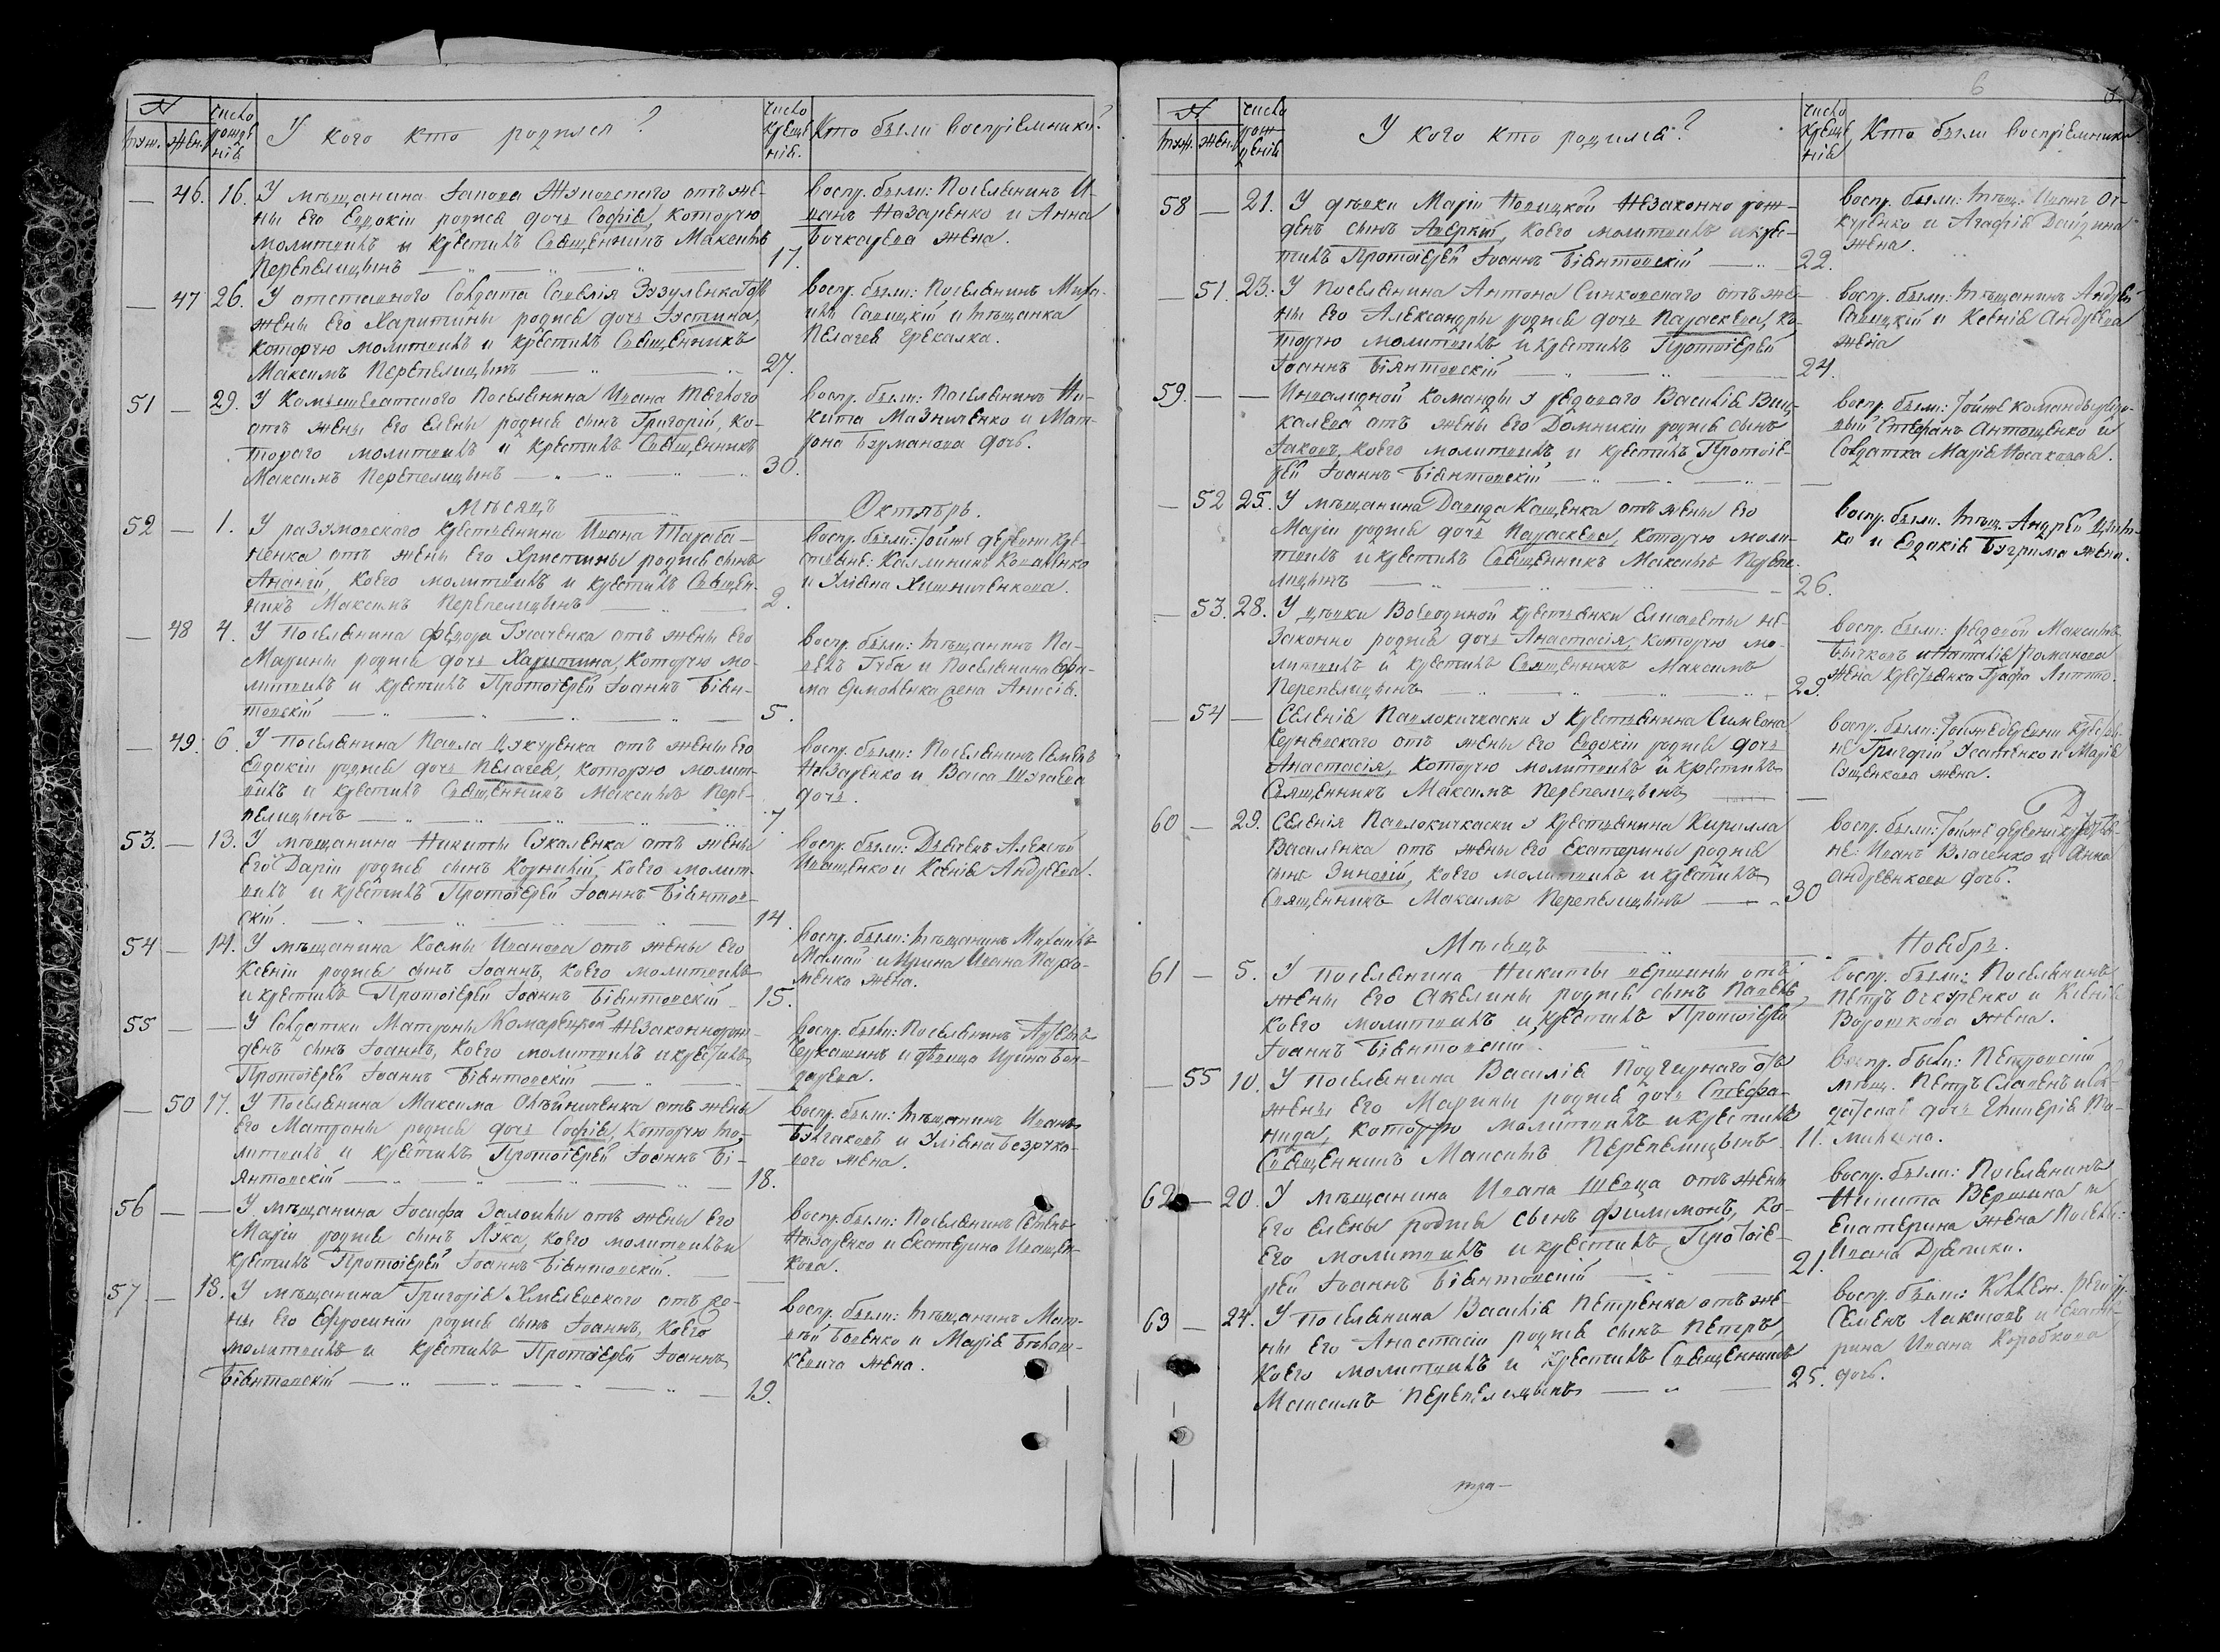 N
муж.
жен.
число рожде нія
У кого кто родился?
число креще нія.
Кто были воспріемники?
— 46. 16. У мѣщанина Іакова Жуковскаго отъ же-
ны его Евдокіи родися дочь Софія, которую
молитвилъ и крестилъ Священникъ Максимъ
Перепелицынъ 17.
воспр. были: Поселянинъ И-
ванъ Назаренко и Анна
Бочкарева жена.
— 47 26. У отставного Солдата Савелія Зозуленка отъ
жены его Харитины родися дочь Іустина,
которую молитвилъ и крестилъ Священникъ
Максимъ Перепелицынъ 27.
воспр. были: Поселянинъ Миха-
илъ Савицкій и мѣщанка
Пелагея Грекалка.
51 — 29. У Камышеватского Поселянина Ивана Тяглого
отъ жены его Елены родися сынъ Григорій, ко-
тораго молитвилъ и крестилъ Священникъ
Максимъ Перепелицынъ 30.
воспр. были: Поселянинъ Ни-
кита Мазниченко и Мат-
рона Бурманова дочь.
Мѣсяцъ Октябрь.
52 — 1. У разумовского крестьянина Ивана Тараба-
ненка отъ жены его Христины родися сынъ
Ананій, коего молитвилъ и крестилъ Священ-
никъ Максимъ Перепелицынъ 2.
воспр. были: Тойже деревни кре-
стьяне: Калиникъ Коваленко
и Уліяна Хижниченкова.
— 48 4. У Поселянина Федора Гусаченка отъ жены его
Марины родися дочь Харитина, которую мо-
литвилъ и крестилъ Протоіерей Іоаннъ Біян-
товскій 5.
воспр. были: мѣщанинъ Па-
велъ Губа и Поселянина Ефи-
ма Ермоленка жена Анисія.
— 49. 6. У поселянина Павла Цукуренка отъ жены его
Евдокіи родися дочь Пелагея, которую молит-
вилъ и крестилъ Священникъ Максимъ Пере-
пелицынъ 7.
воспр. были: Поселянинъ Семенъ
Назаренко и Васса Шугаева
дочь.
53. — 13. У мѣщанина Никиты Сукаленка отъ жены
его Даріи родися сынъ Корнилій, коего молит-
вилъ и крестилъ Протоіерей Іоаннъ Біянтов-
скій. 14.
воспр. были: Дьячекъ Алексѣй
Иващенко и Ксенія Андреева.
54 — 14. У мѣщанина Космы Иванова отъ жены его
Ксеніи родися сынъ Іоаннъ, коего молитвилъ
и крестилъ Протоіерей Іоаннъ Біянтовскій 15.
воспр. были: мѣщанинъ Михаилъ
Мамай и Ирина Ивана Пархо-
менко жена.
55 — — У Солдатки Матроны Комарецкой незаконнорож-
денъ сынъ Іоаннъ, коего молитвилъ и крестилъ
Протоіерей Іоаннъ Біянтовскій
воспр. были: Поселянинъ Артемъ
Черкашинъ и дѣвица Ирина Бон-
дарева.
— 50 17. У Поселянина Максима Олѣйниченка отъ жены
его Матроны родися дочь Софія, которую мо-
литвилъ и крестилъ Протоіерей Іоаннъ Бі-
янтовскій 18.
воспр. были: мѣщанинъ Иванъ
Булгаковъ и Уліяна Безручко-
ваго жена.
56 — — У мѣщанина Іосифа Заломы отъ жены его
Маріи родися сынъ Лука, коего молитвилъ и
крестилъ Протоіерей Іоаннъ Біянтовскій.
воспр. были: Поселянинъ Семенъ
Назаренко и Екатерина Иващен-
кова.
57 — 18. У мѣщанина Григорія Хмелевского отъ же-
ны его Ефросиніи родися сынъ Іоаннъ, коего
молитвилъ и крестилъ Протоіерей Іоаннъ
Біянтовскій 19.
воспр. были: мѣщанинъ Мат-
вѣй Боенко и Марія
жена.
6
N
муж.
жен.
число рож денія
У кого кто родился?
число креще нія
Кто были воспріемники
58 — 21. У дѣвки Маріи Новицкой незаконно рож-
денъ сынъ Аверкій, коего молитвилъ и крес-
тилъ Протоіерей Іоаннъ Біянтовскій 22.
воспр. были: мѣщ: Иванъ Оч-
куренко и Агафія Дейдина
жена.
— 51. 23. У Поселянина Антона Синковскаго отъ же-
ны его Александры родися дочь Параскева, ко-
торую молитвилъ и крестилъ Протоіерей
Іоаннъ Біянтовскій 24.
воспр. были: мѣщанинъ Андрей
Савицкій и Ксенія Андреева
жена
59. — — Инвалидной команды у рядоваго Василія Виш-
калева отъ жены его Домникіи родися сынъ
Іаковъ, коего молитвилъ и крестилъ Протоіе-
рей Іоаннъ Біянтовскій
воспр. были: Тойже команды рядо-
вый Стефанъ Антощенко и
Солдатка Марія Мосаковая.
— 52 25. У мѣщанина Давида Кащенка отъ жены его
Маріи родися дочь Параскева, которую моли-
твилъ и крестилъ Священникъ Максимъ Перепе-
лицынъ 26.
воспр. были. мѣщ. Андрей
и Евдокія Бугрима жена.
— 53. 28. У дѣвки Воеводиной крестьянки Елисаветы не-
законно родися дочь Анастасія, которую мо-
литвилъ и крестилъ Священникъ Максимъ
Перепелицынъ 29.
воспр. были: рядовой Максимъ
Бычковъ и Наталія Романова
жена крестьянка Графа Литто.
— 54 — Селенія Павлокичкаски у Крестьянина Симеона
Чернявского отъ жены его Евдокіи родися дочь
Анастасія, которую молитвилъ и крестилъ
Священникъ Максимъ Перепелицынъ
воспр. были: Тойже деревни крестья-
не Григорій Усатенко и Марія
Сущенкова жена.
60 — 29. Селенія Павлокичкаски у Крестьянина Кирилла
Василенка отъ жены его Екатерины родися
сынъ Зиновій, коего молитвилъ и крестилъ
Священникъ Максимъ Перепелицынъ 30
воспр. были: Тойже деревни крестья-
не: Иванъ Власенко и Анна
Андреенкова дочь.
Мѣсяцъ Ноябрь.
61 — 5. У поселянина Никиты Вершины отъ
жены его Акелины родися сынъ Павелъ,
коего молитвилъ и крестилъ Протоіерей
Іоаннъ Біянтовскій
воспр. были: Поселянинъ
Петръ Очкуренко и Ксенія
Ворошкова жена.
— 55 10. У поселянина Василія Подгирнаго отъ
жены его Марины родися дочь Стефа-
нида, которую молитвилъ и крестилъ
Священникъ Максимъ Перепелицынъ. 11.
воспр. были: Петровскій
мѣщ. Петръ Славенъ и сол-
датская дочь Гликерія
62 — 20. У мѣщанина Ивана Шевца отъ жены
его Елены родися сынъ Филимонъ, ко-
его молитвилъ и крестилъ Протоіе-
рей Іоаннъ Біянтовскій 21.
воспр. были: Поселянинъ
Никита Вершина и
Екатерина жена Поселян:
Ивана Древаски.
63 — 24. У поселянина Василія Петренка отъ же-
ны его Анастасіи родися сынъ Петръ,
коего молитвилъ и крестилъ Священникъ
Максимъ Перепелицынъ 25.
воспр. были: Коллеж. Регистр.
Семенъ Лакизовъ и Екате-
рина Ивана Коробкова
дочь.
тра-